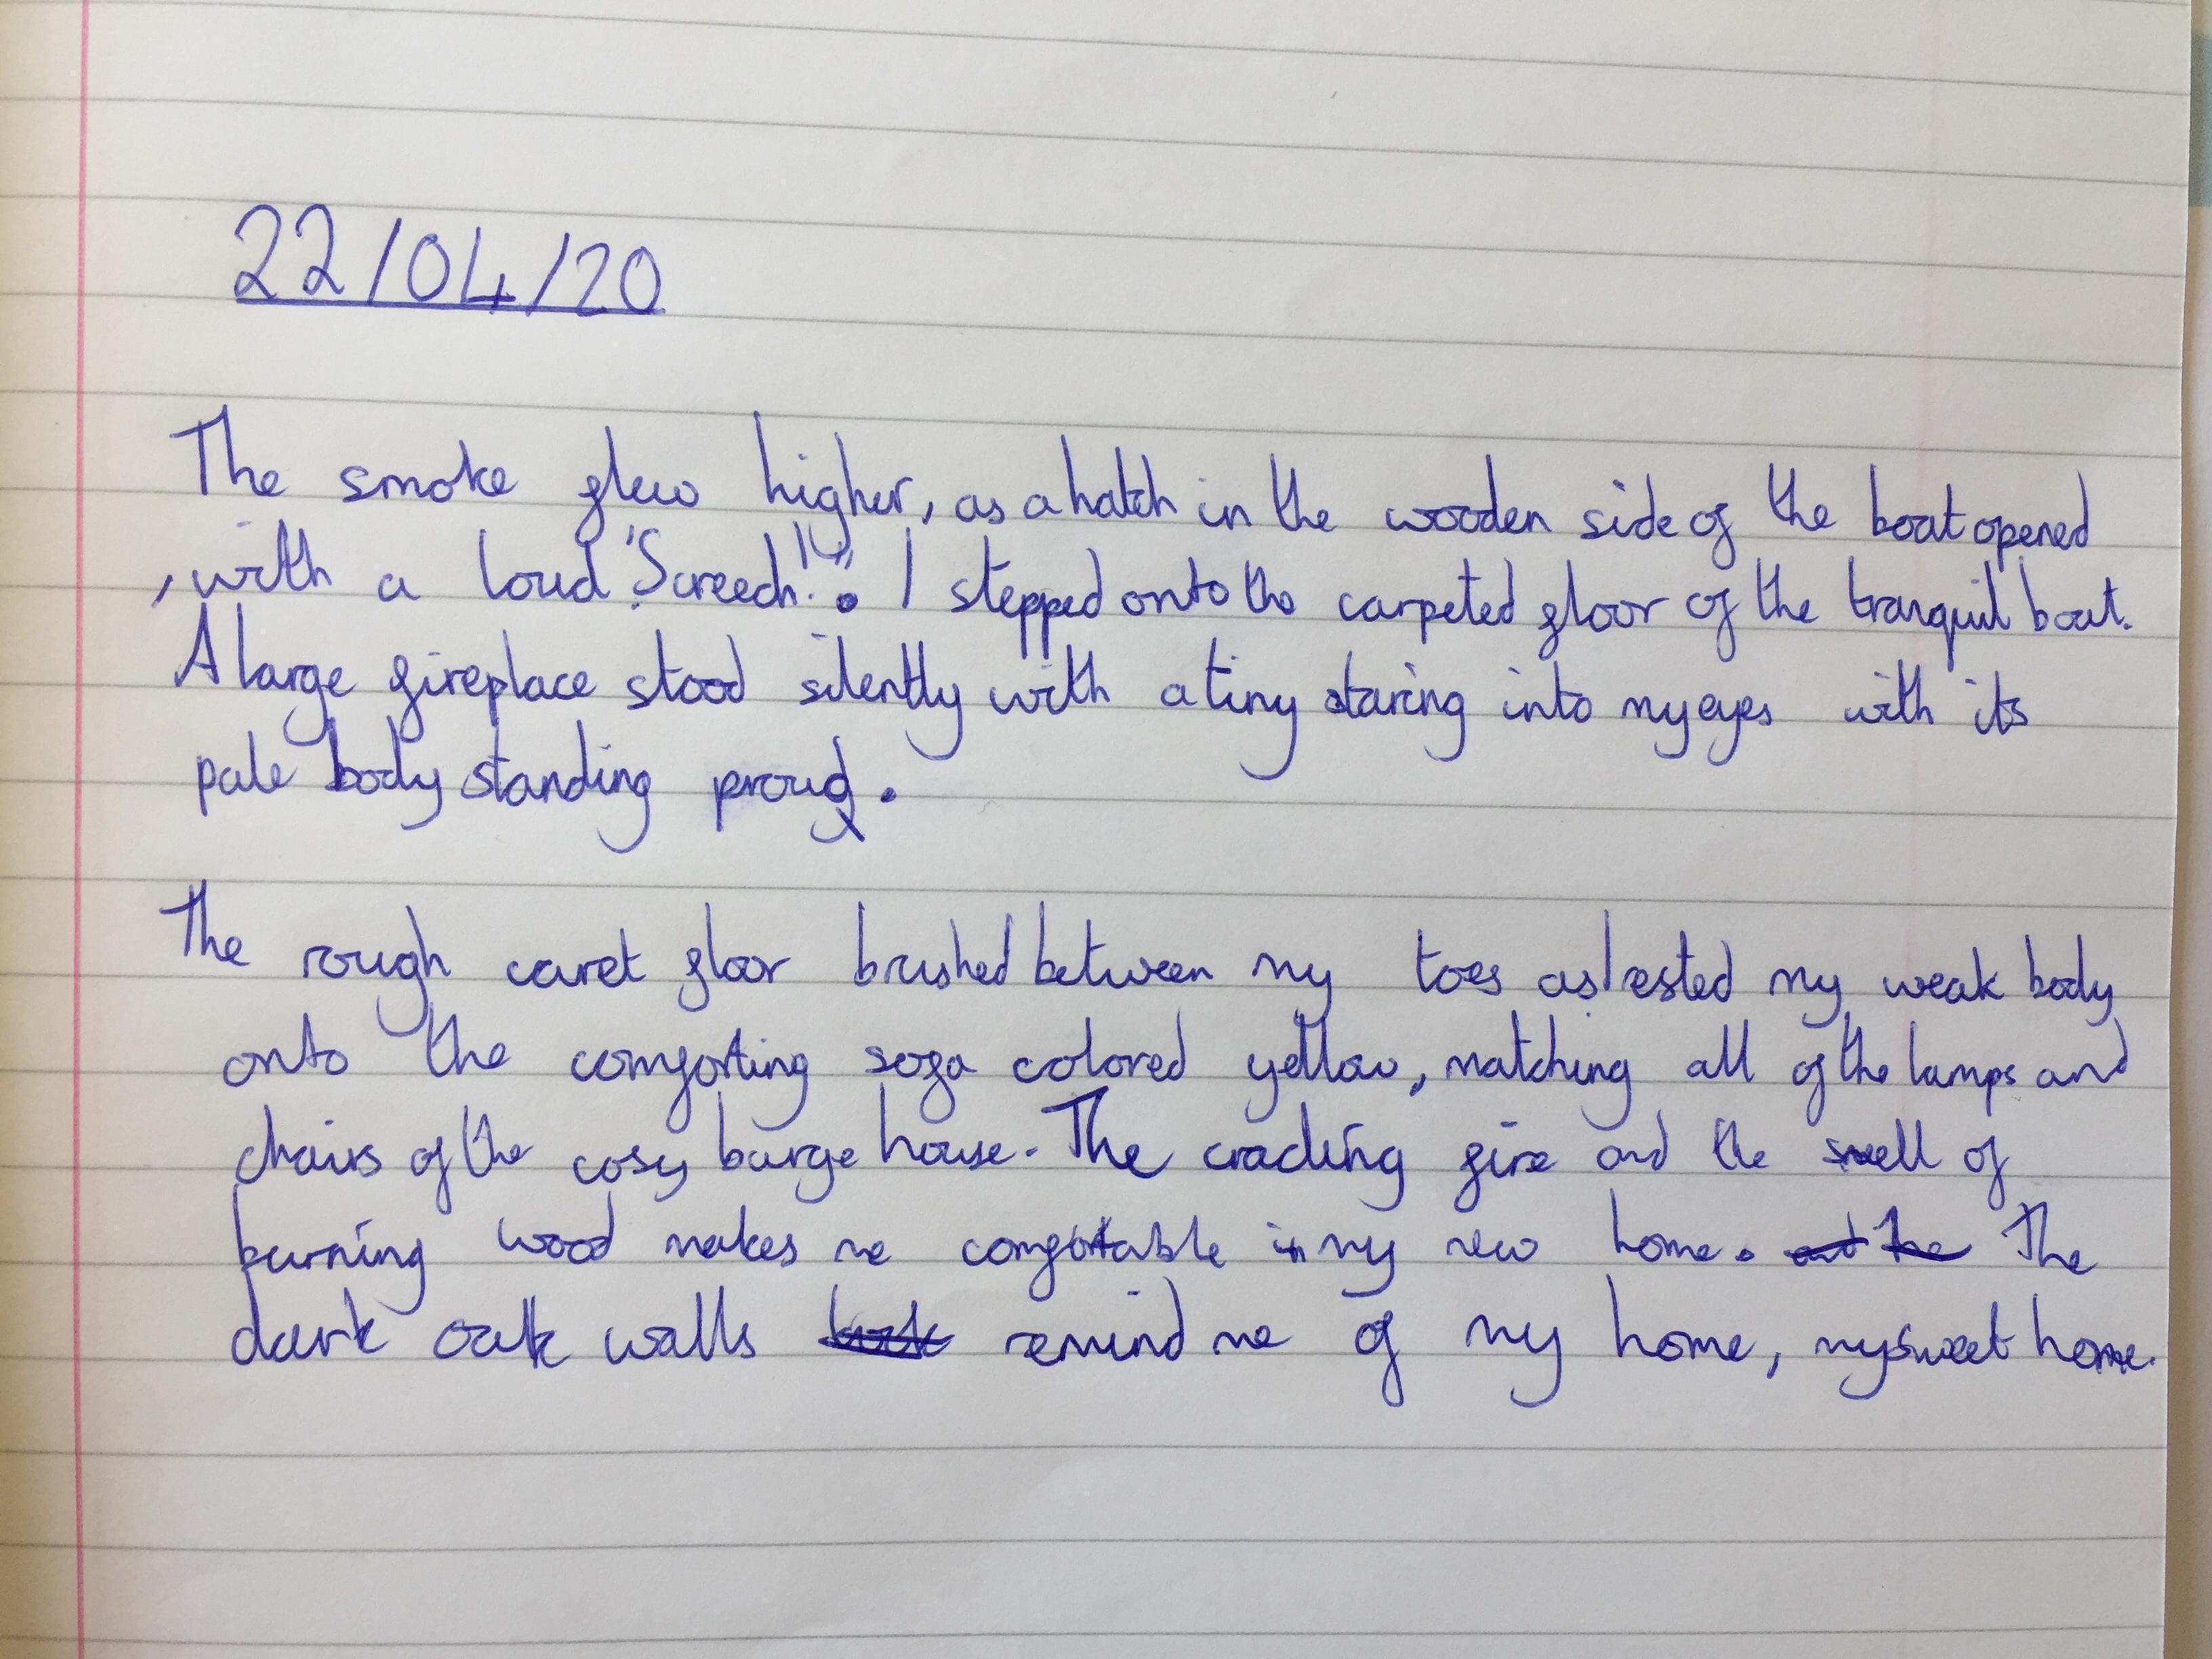 22/04/20
The smoke flew higher, as a hatch in the wooden side of the boat opened
, with a loud "Screech!!". I stepped onto the carpeted floor of the tranquil boat.
A large fireplace stood silently with a tiny staring into my eyes with its
pale body standing proud.
The rough caret floor brushed between my toes as I rested my weak body
onto the comforting sofa colored yellow, matching all of the lamps and
chairs of the cosy barge house. The crackling fire and the smell of
burning wood makes me comfortable in my new home. The
dark oak walls remind me of my home, my sweet home.